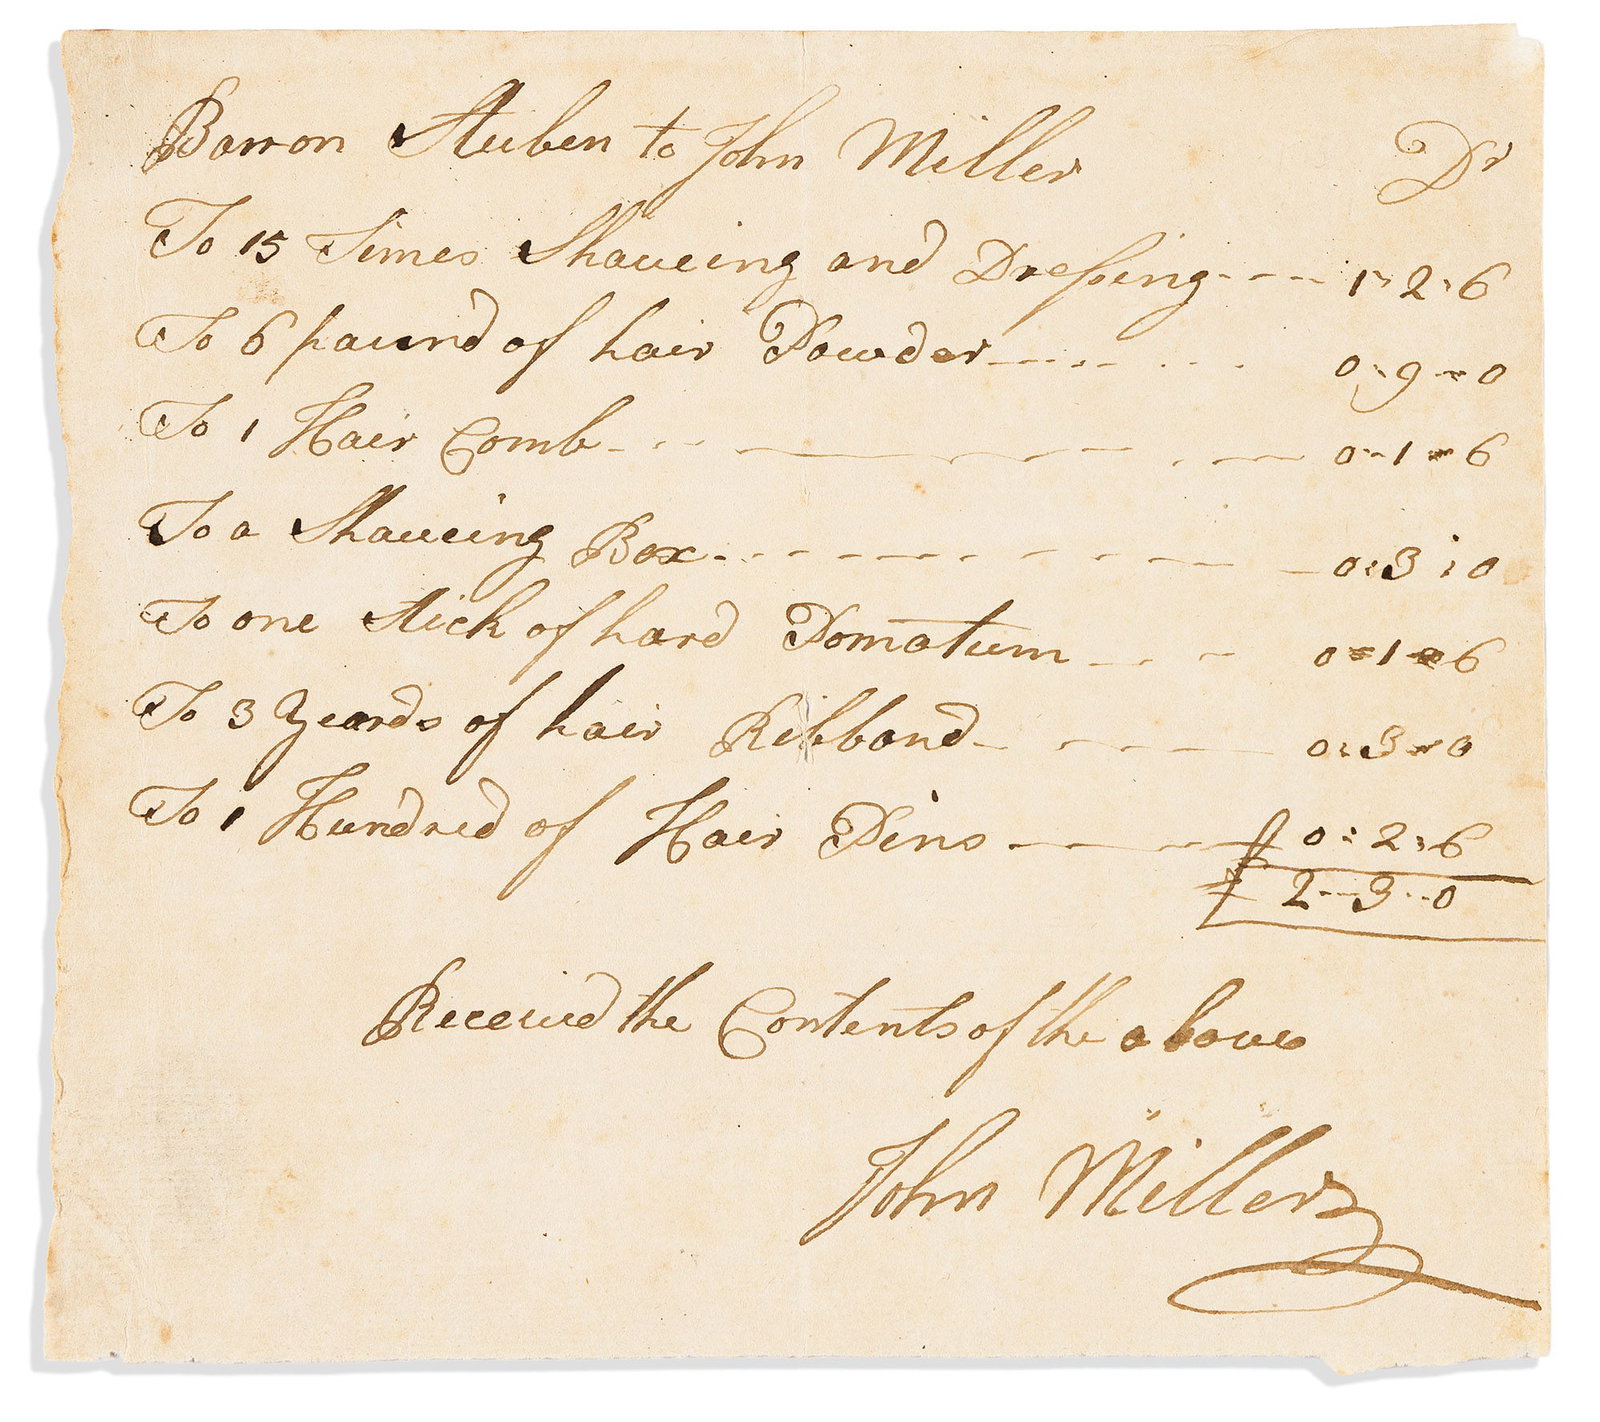 Barron Steuben to John Miller Dr
To 15 Times Shaveing and Dressing---- 1"2"6
To 6 pound of hair Powder------ 0"9"0
To 1 Hair Comb---- 0"1"6
To a Shaveing Box---- 0:3:0
To one Stick of hard Pomatum---- 0"1"6
To 3 Yeards of hair Ribband---- 0:3"0
To 1 Hundred of Hair Pins---- £ 0:2:6
£ 2--3--0
Received the Contents of the above
John Miller